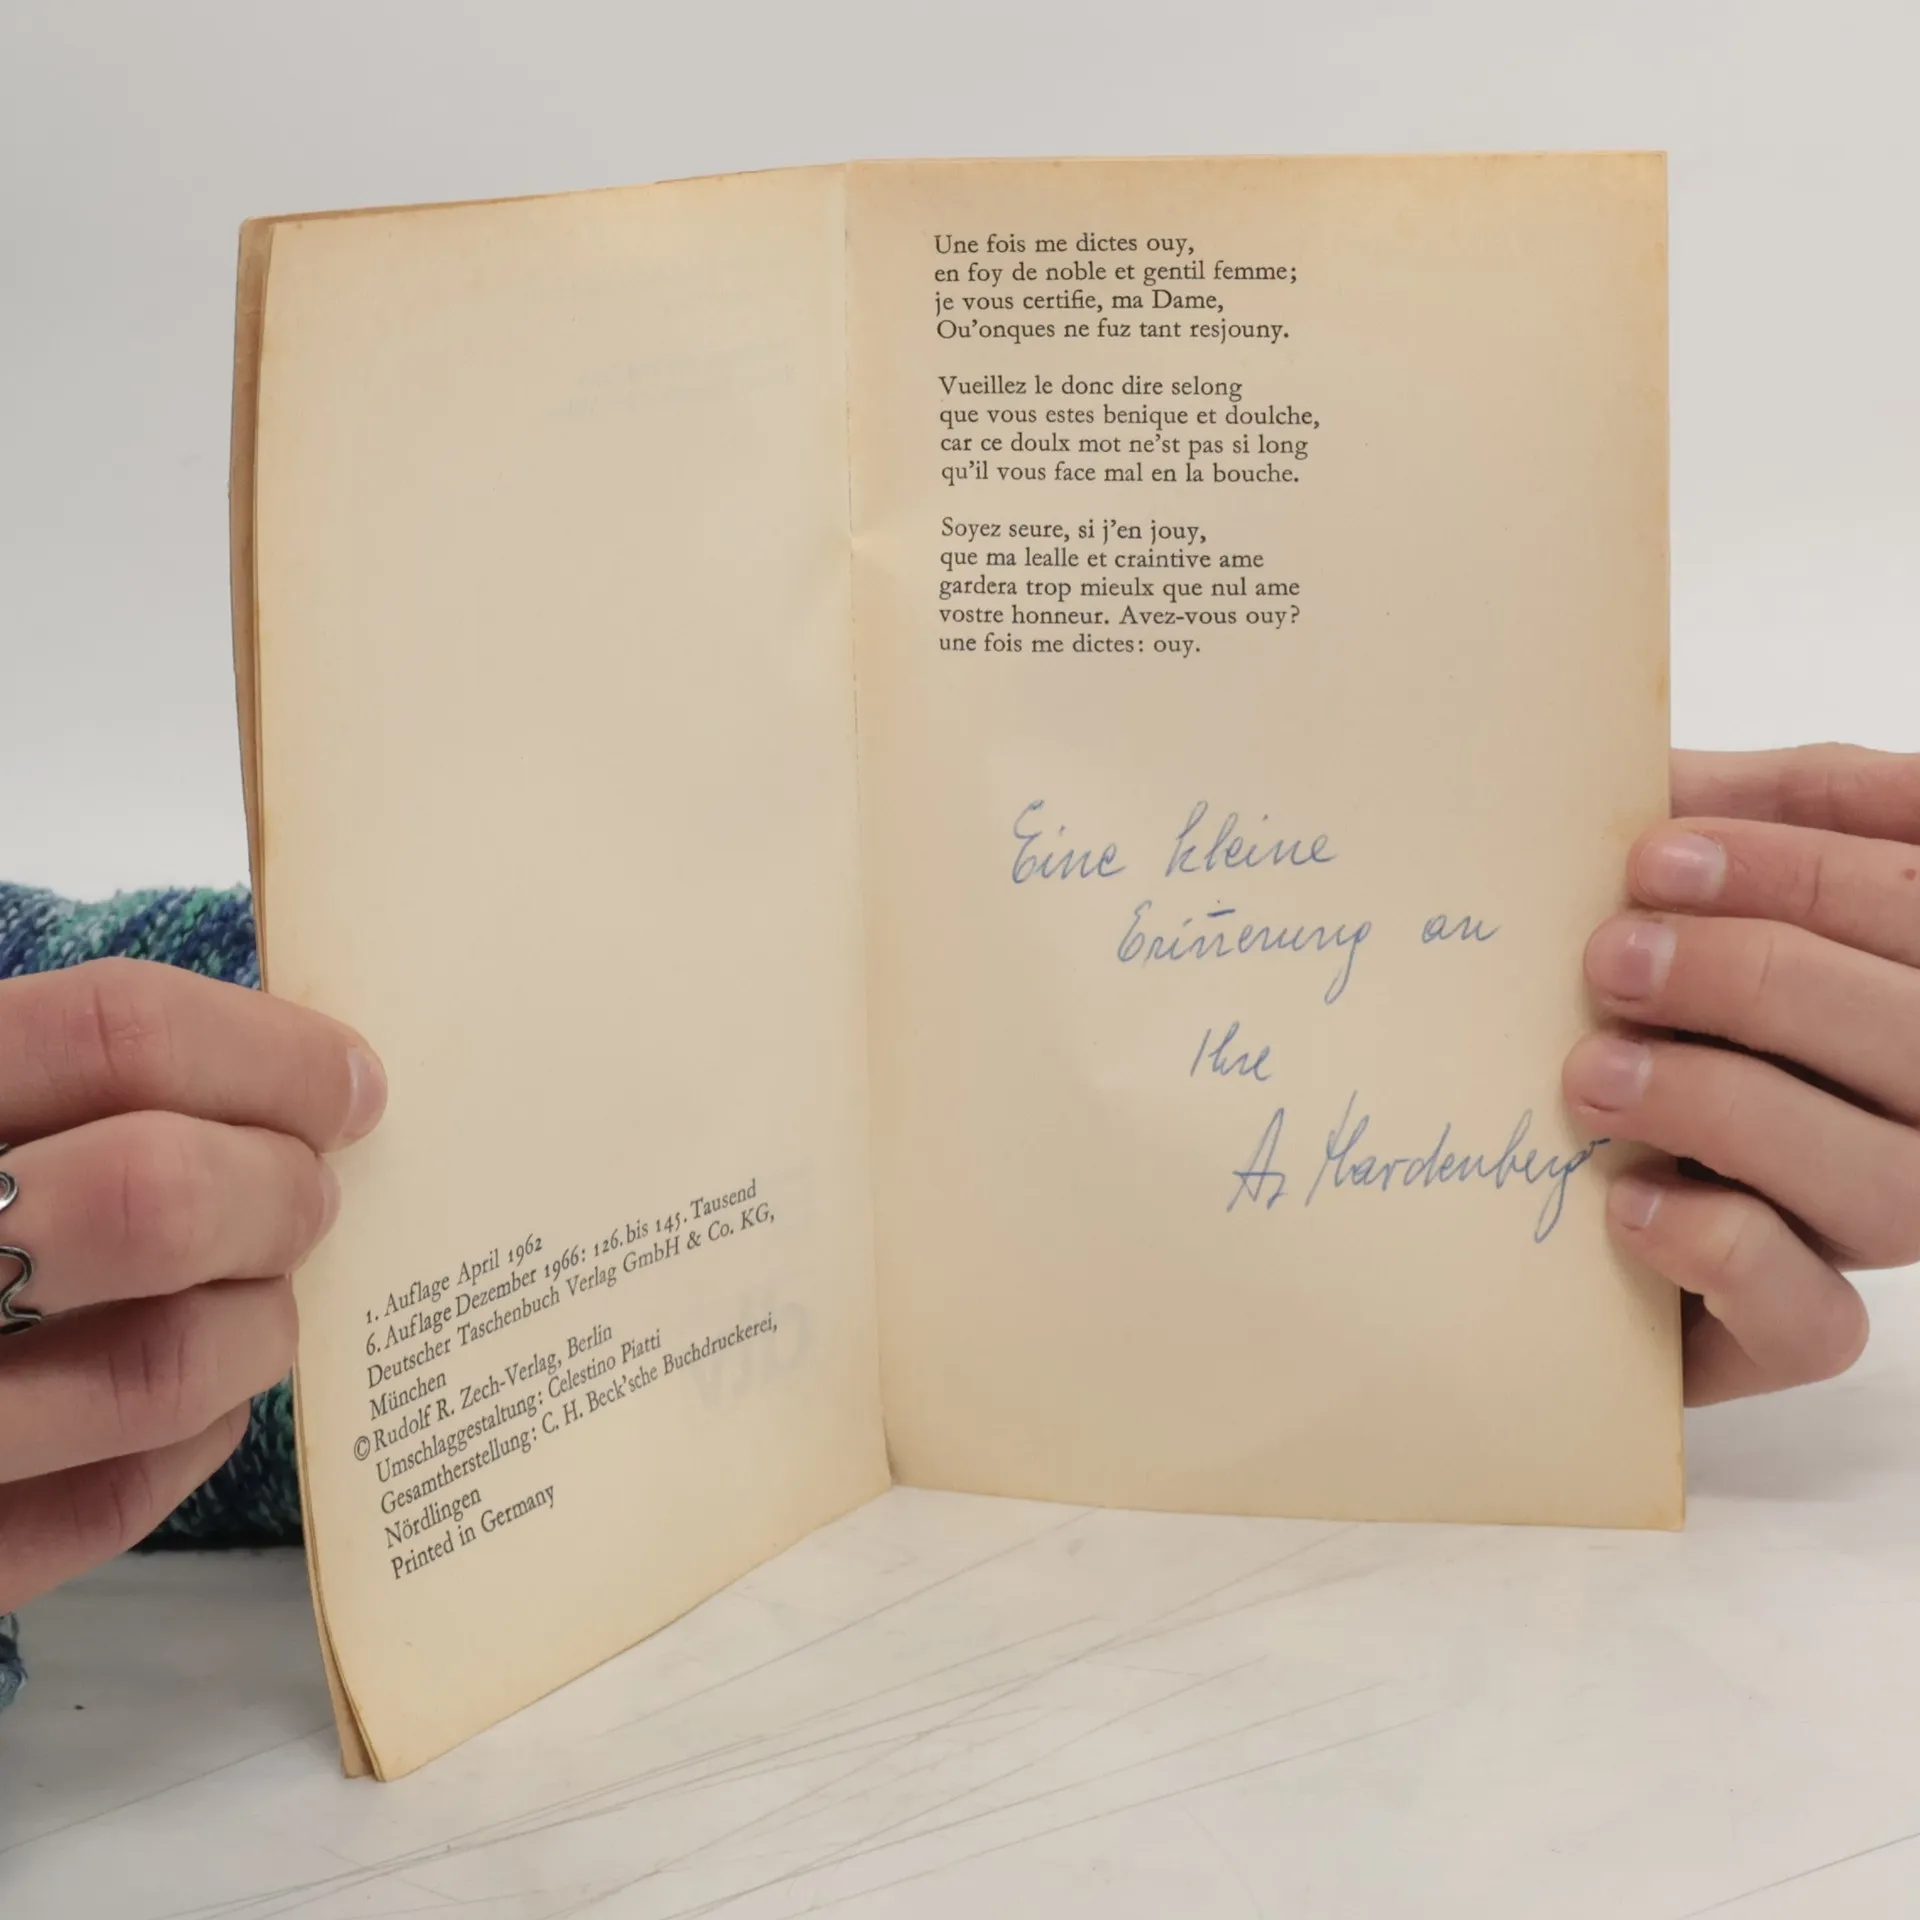 1. Auflage April 1962
6. Auflage Dezember 1966: 126. bis 145. Tausend
Deutscher Taschenbuch Verlag GmbH & Co. KG,
München
© Rudolf R. Zech-Verlag, Berlin
Umschlaggestaltung: Celestino Piatti
Gesamtherstellung: C. H. Beck'sche Buchdruckerei,
Nördlingen
Printed in Germany
Une fois me dictes ouy,
en foy de noble et gentil femme;
je vous certifie, ma Dame,
Ou'onques ne fuz tant resjouny.
Vueillez le donc dire selong
que vous estes benique et doulche,
car ce doulx mot ne'st pas si long
qu'il vous face mal en la bouche.
Soyez seure, si j'en jouy,
que ma lealle et craintive ame
gardera trop mieulx que nul ame
vostre honneur. Avez-vous ouy?
une fois me dictes: ouy.
Eine kleine
Erin̄erung an
Ihre
Hardenberg